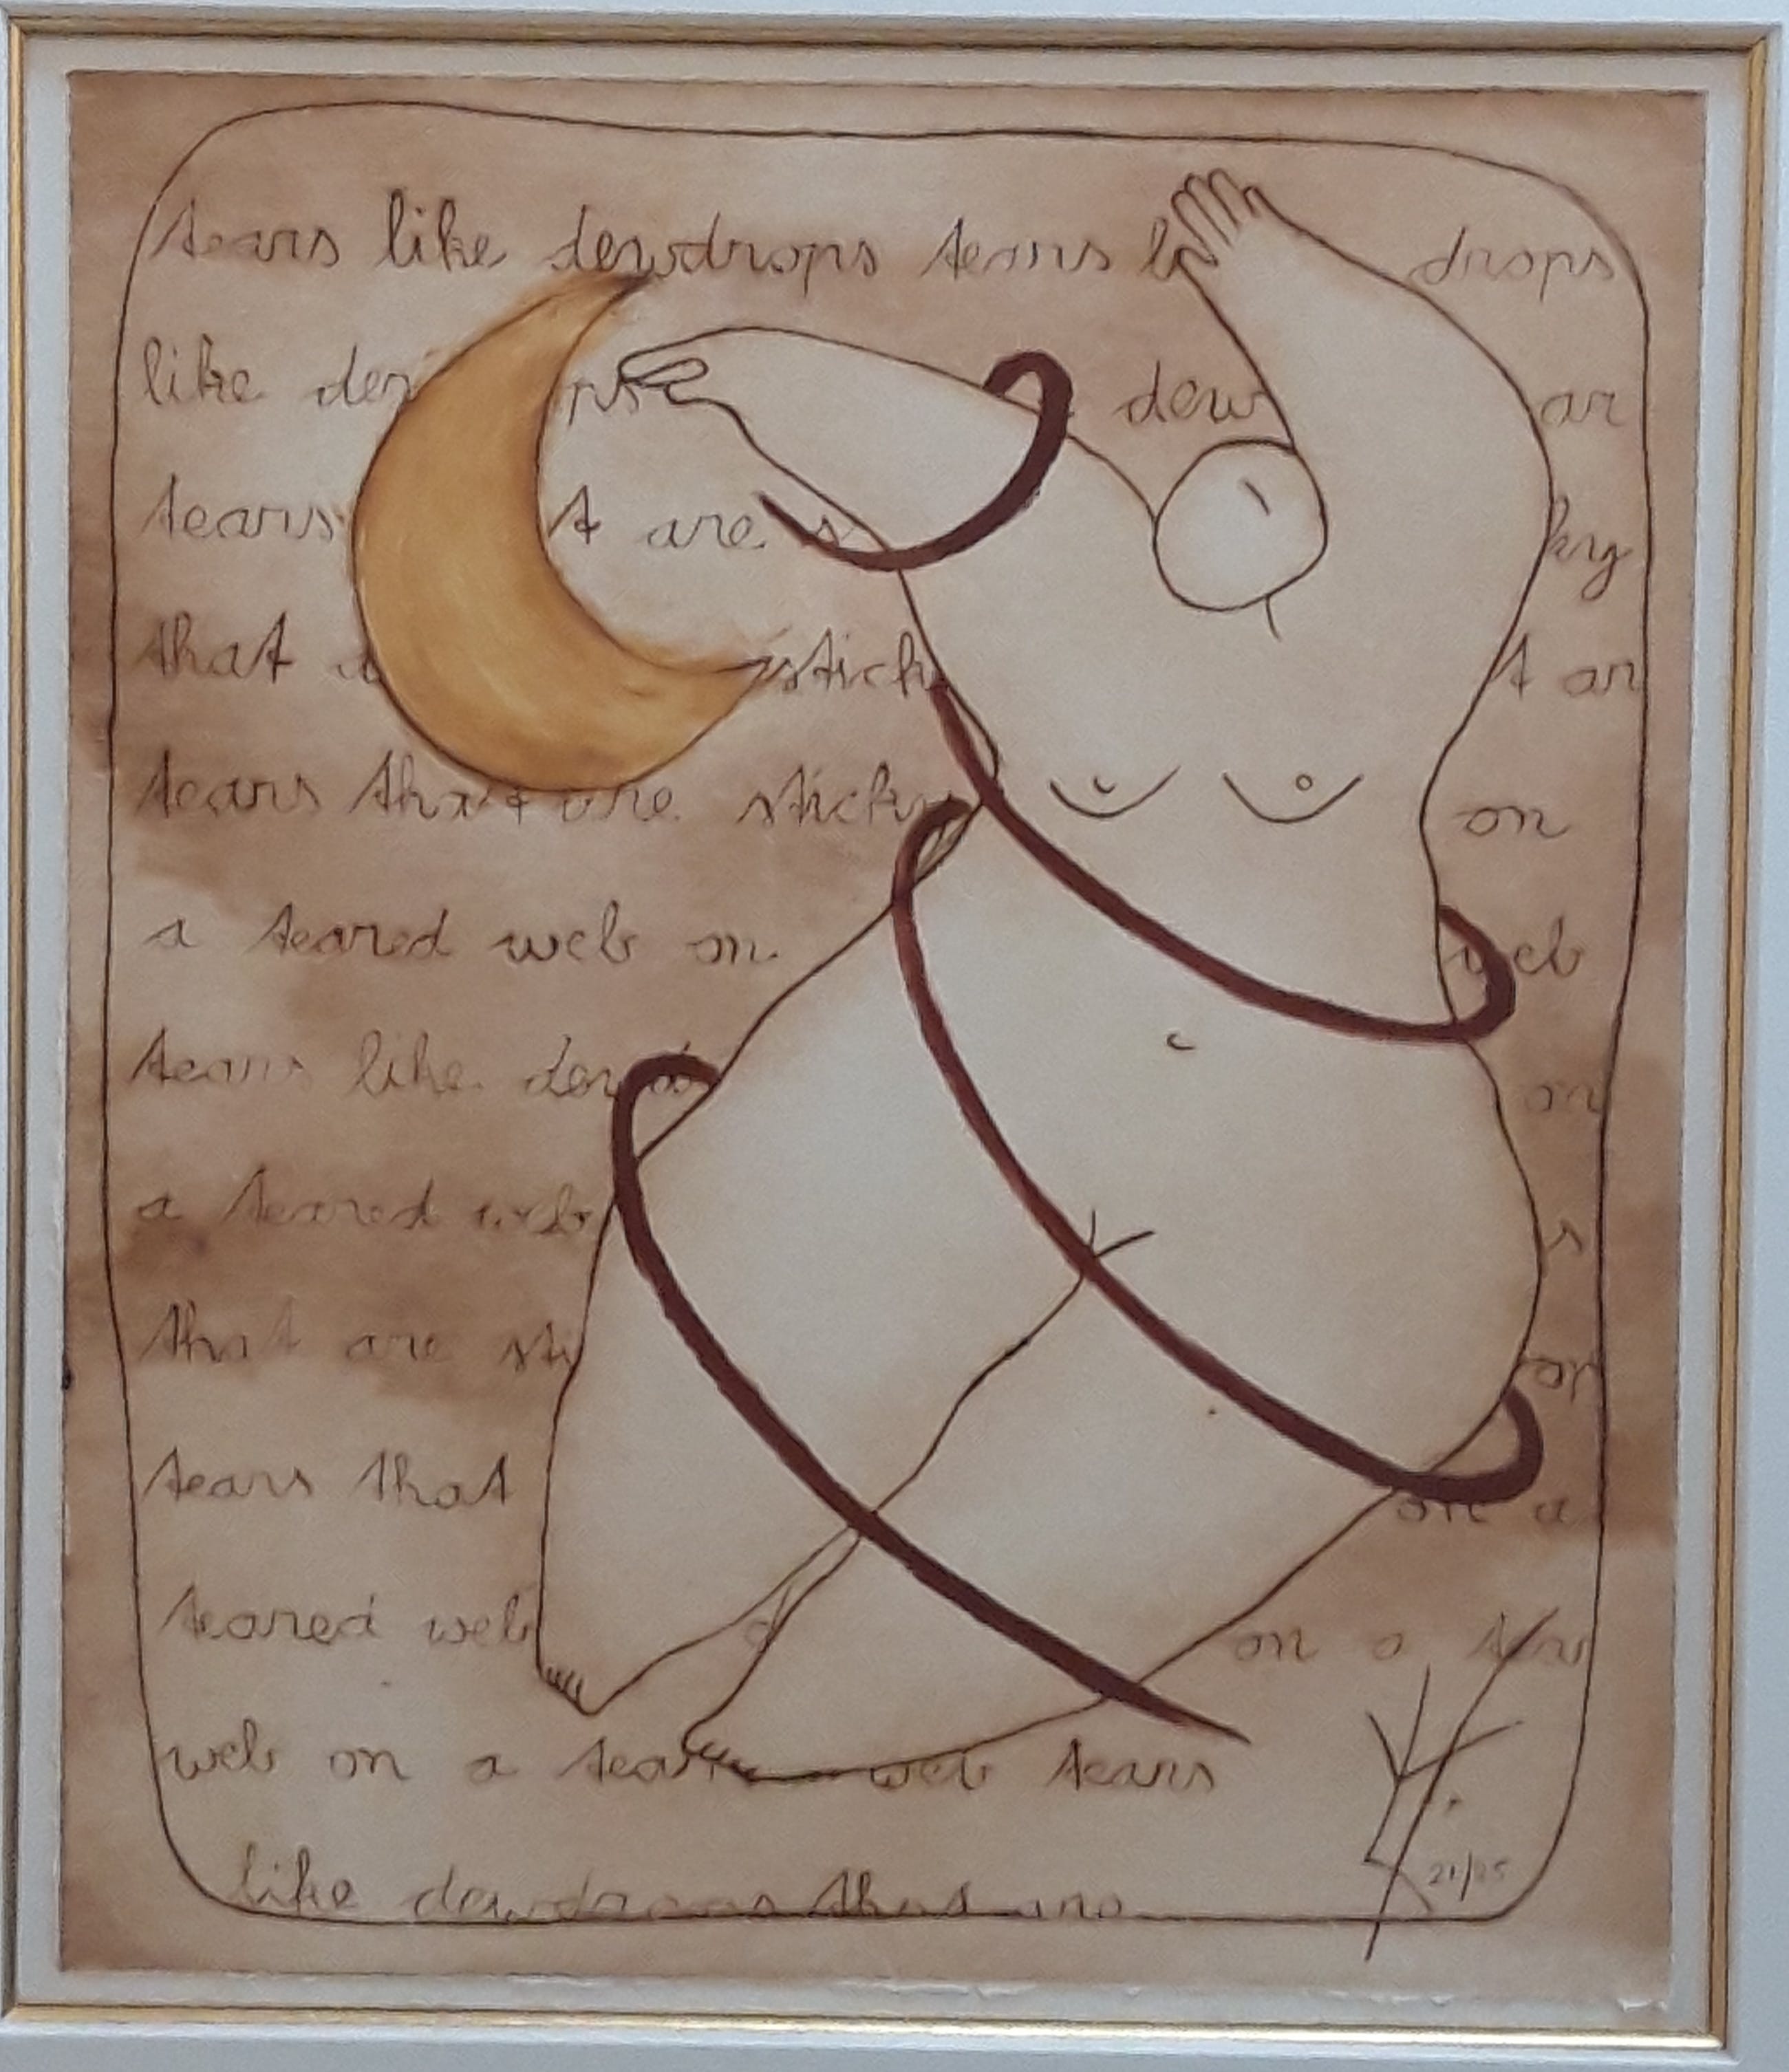 tears like dewdrops tears li drops
like dew ps dew ar
tears t are s ky
that a stick t ar
tears that are sticky on
a teared web on web
tears like dewd on
a teared web s
that are sti or
tears that on a
teared web d on a tea
web on a tear web tears
like dewdrops that are
21/25